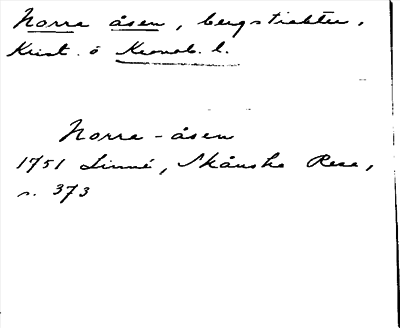 Norra åsen, bergstrakter,
Krist. o Kronob. l.
Norra-åsen
1751 Linné, Skånska Resa,
s. 373